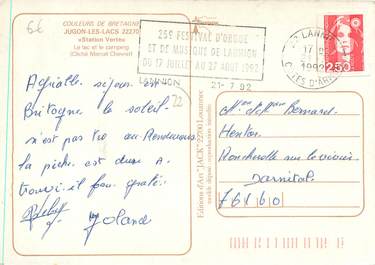 66
COULEURS DE BRETAGNE
JUGON-LES-LACS 22270
«Station Verte»
Le lac et le camping
(Cliché Marcel Chevret)
25e FESTIVAL D'ORGUE
ET DE MUSIQUE DE LANNION
DU 17 JUILLET AU 27 AOUT 1992
LANNION 21-7.92
22 LANNION
1992
COTES D'AR
2,50
22
Agréable séjour en
Bretagne le soleil
n'est pas au Rendez-vous
la pêche est dure A
trouver il faut
Yoland
Editions d'Art "JACK" 22700 Louannec
Mr et Mme Bernard
Henton
Roncherolle sur le vivier
Darnital
76160